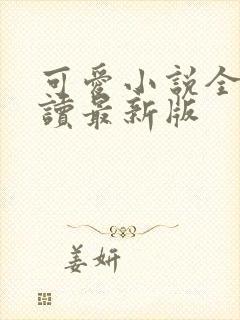 可愛小説全
讀最新版
姜妍